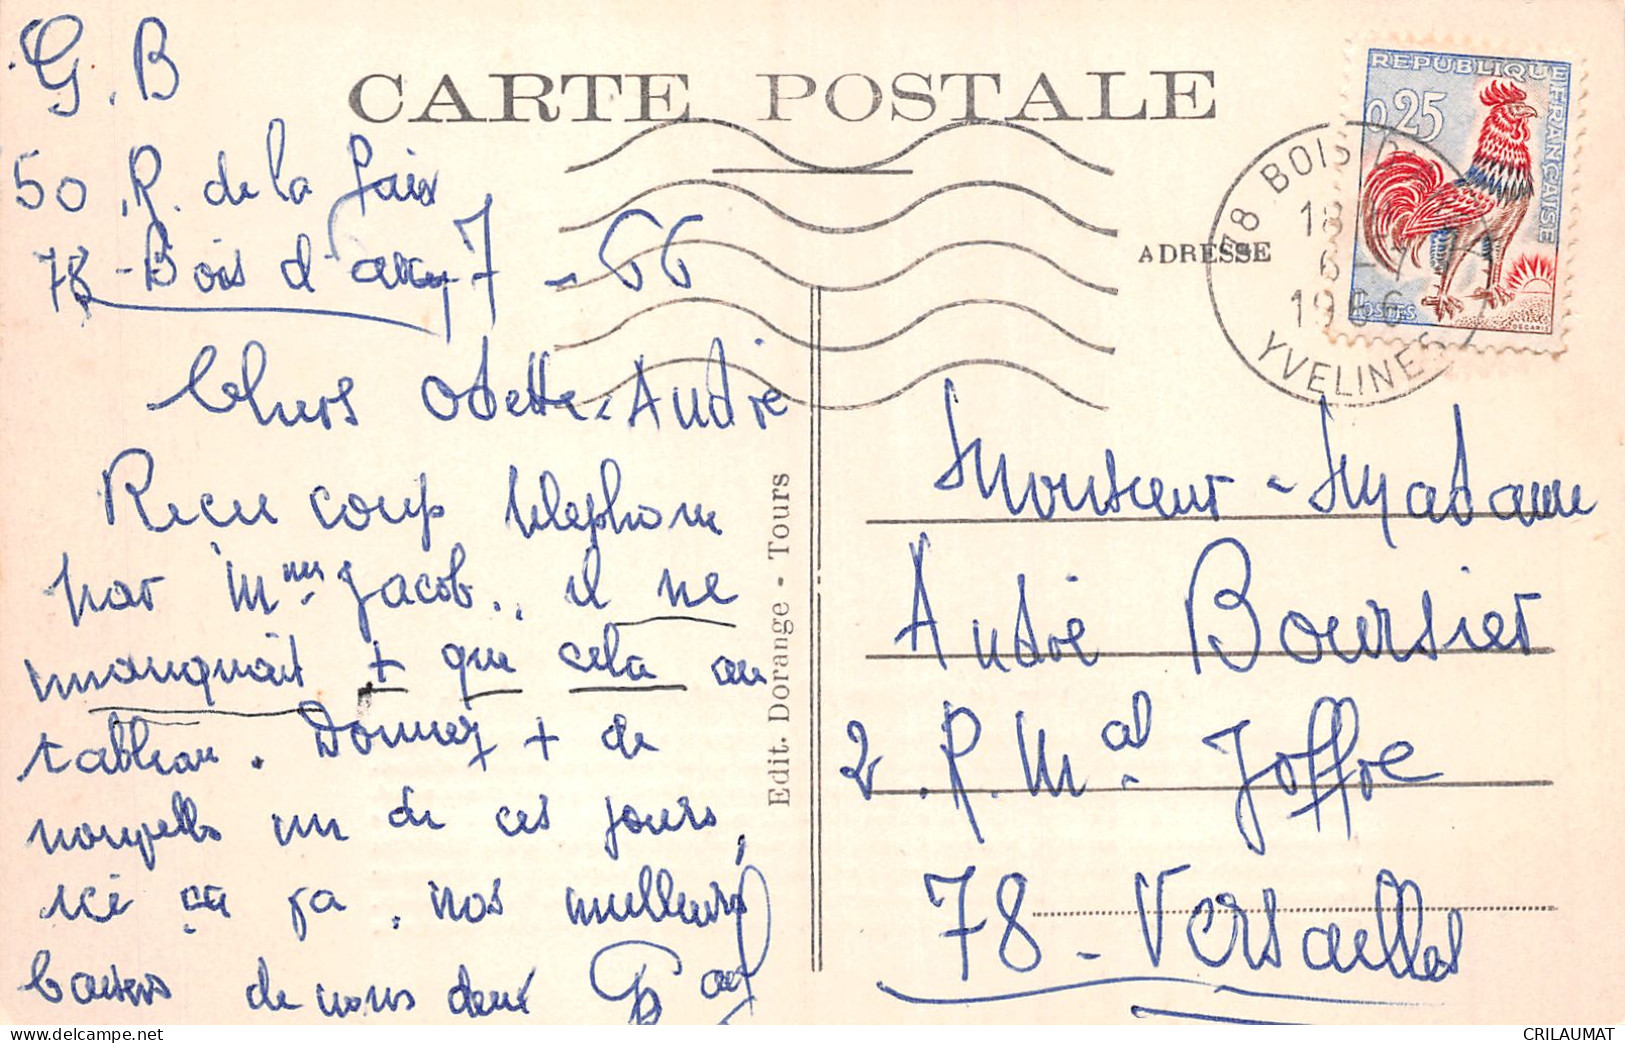 G. B
CARTE POSTALE
50, R. de la Paix
78 - Bois d'arcy 7 - 66
Chers Odette - André
Recu coup telephone
par Mme Jacob., il ne
manquait + que cela au
tableau. Donnez + de
nouvelles un de ces jours,
ici ça, nos meilleurs
baisers de nous deux
Edit. Dorange - Tours
REPUBLIQUE FRANÇAISE
0,25
POSTES
DECARIS
78 BOIS D'
18
6 - 7
1966
YVELINES
ADRESSE
Monsieur - Madame
André Boursier
2. R. Mal. Joffre
78 - Versailles
CRILAUMAT